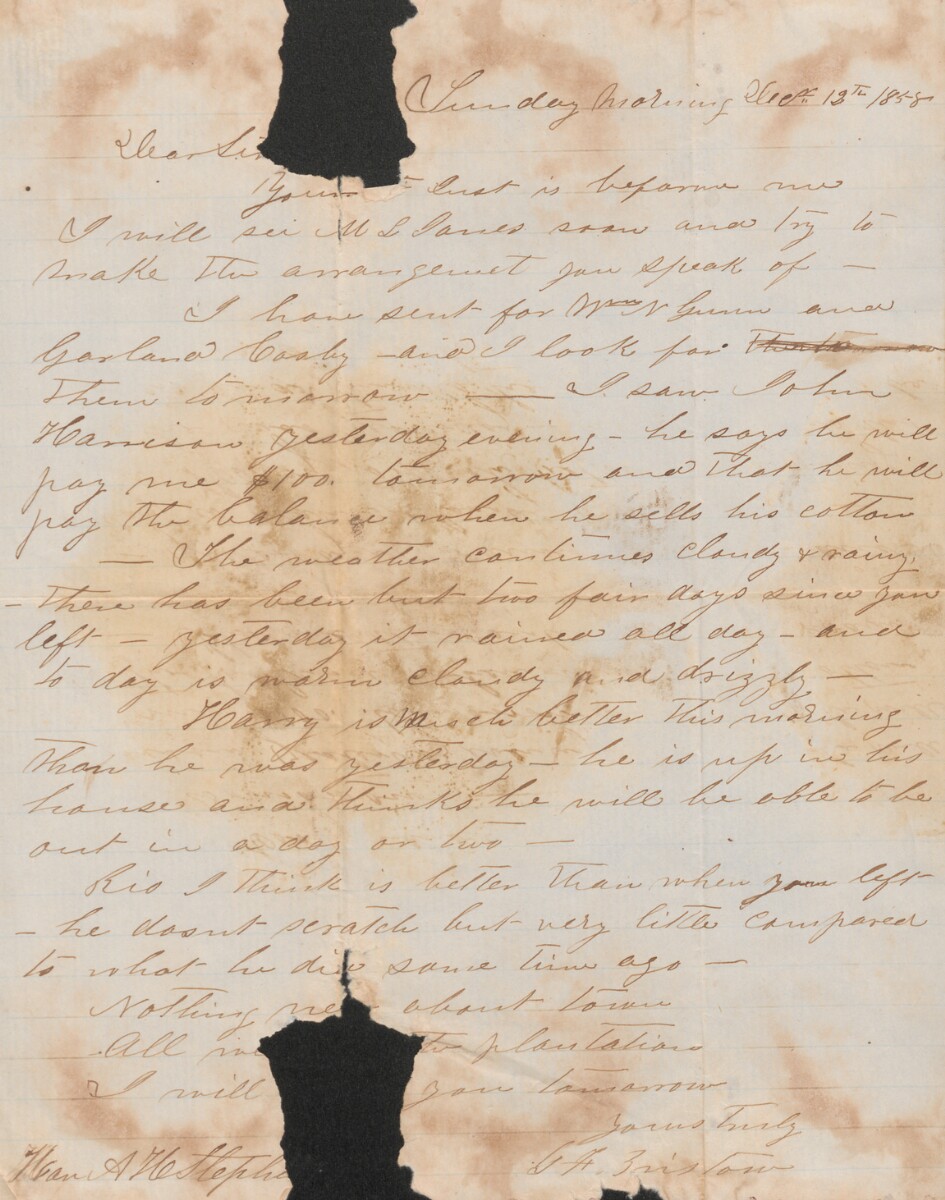 Sunday Morning Decr. 12th 1858
Dear Sir
Your Inst is before me
I will see M L Janes soon and try to
make the arrangemet you speak of —
I have sent for Wm N Gunn and
Garland Cosby — and I look for
them tomorrow — I saw John
Harrison yesterday evening — he says he will
pay me $100. tomorrow and that he will
pay the balance when he sells his cotton
— The weather continues cloudy & rainy
— there has been but two fair days since you
left — yesterday it rained all day — and
to day is warm cloudy and drizzly —
Harry is Much better this morning
than he was yesterday — he is up in his
house and thinks he will be able to be
out in a day or two —
Rio I think is better than when you left
— he dosnt scratch but very little compared
to what he did some time ago —
Nothing new about town
All plantation
I will you tomorrow
yours Truly
Hon A H Stephe Bristow